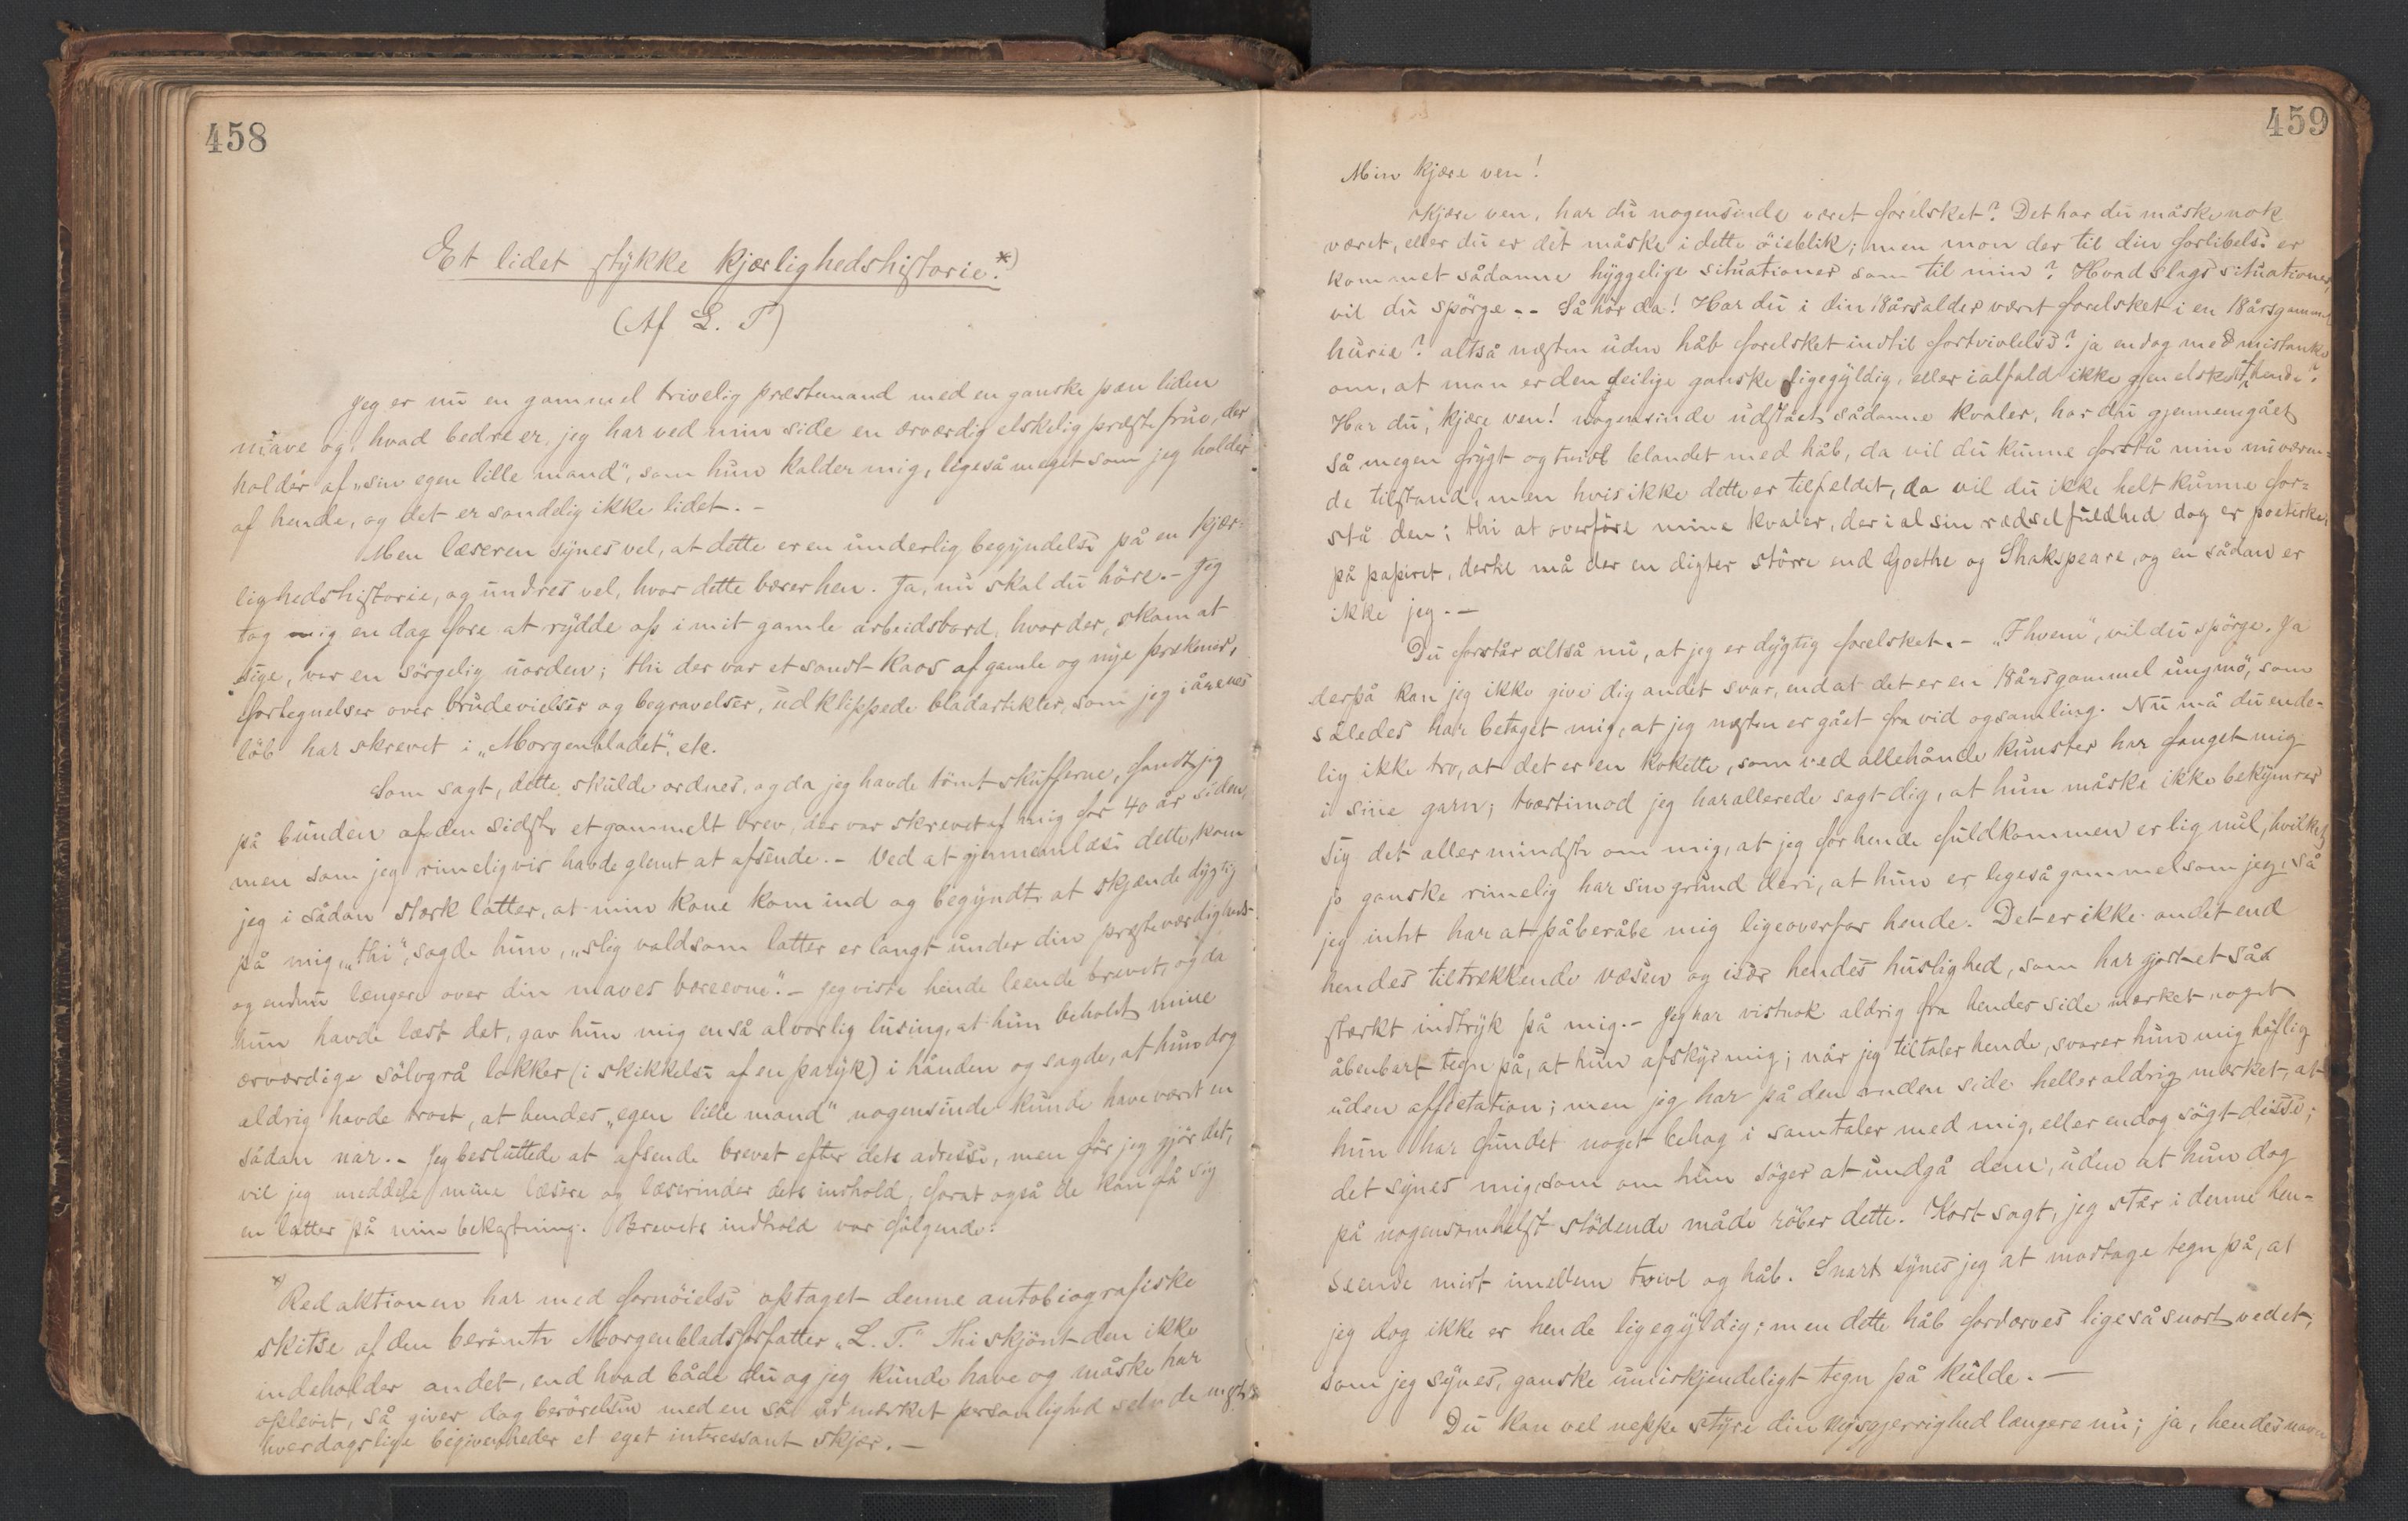 458
Et lidet stykke kjærlighedshistorie.*)
(Af L. T)
Jeg er nu en gammel trivelig præstemand med en ganske pæn liden
mave og, hvad bedre er, jeg har ved min side en ærværdig elskelig præstefrue, der
holder af „sin egen lille mand", som hun kalder mig, ligeså meget som jeg holder
af hende, og det er sandelig ikke lidet. -
Men læseren synes vel, at dette er en underlig begyndelse på en kjær-
lighedshistorie, og undres vel, hvor dette bærer hen. Ja, nu skal du höre. - Jeg
tog mig en dag fore at rydde op i mit gamle arbeidsbord, hvor der, skam at
sige, var en sörgelig uorden; thi der var et sandt kaos af gamle og nye prækener,
fortegnelser over brudevielser og begravelser, udklippede bladartikler, som jeg i årenes
löb har skrevet i „Morgenbladet", etc.
Som sagt, dette skulde ordnes, og da jeg havde tömt skufferne, fandt jeg
på bunden af den sidste et gammelt brev, der var skrevet af mig for 40 år siden,
men som jeg rimeligvis havde glemt at afsende. - Ved at gjennemlæse dette, kom
jeg i sådan stærk latter, at min kone kom ind og begyndte at skjænde dygtig
på mig, „thi", sagde hun, „slig voldsom latter er langt under din præsteværdighed
og endnu længere over din maves bæreevne". - Jeg viste hende leende brevet, og da
hun havde læst det, gav hun mig en så alvorlig lusing, at hun beholdt mine
ærværdige sölvgrå lokker (i skikkelse af en paryk) i hånden og sagde, at hun dog
aldrig havde troet, at hendes „egen lille mand" nogensinde kunde have været en
sådan nar. - Jeg besluttede at afsende brevet efter dets adresse, men för jeg gjör det,
vil jeg meddele mine læsere og læserinder dets indhold, forat også de kan få sig
en latter på min bekostning. Brevets indhold var fölgende:
*) Redaktionen har med fornöielse optaget denne autobiografiske
skitse af den berömte Morgenbladsforfatter „L. T." Thi skjönt den ikke
indeholder andet, end hvad både du og jeg kunde have og måske har
oplevet, så giver dog berörelsen med en så udmærket personlighed selv de mest
hverdagslige begivenheder et eget interessant skjær. -
459
Min kjære ven!
Kjære ven, har du nogensinde været forelsket? Det har du måske nok
været, eller du er det måske i dette öieblik; men mon der til din forlibelse er
kommet sådanne hyggelige situationer som til min? Hvad slags situationer,
vil du spörge -- Så hör da! Har du i din 18årsalder været forelsket i en 18årsgammel
hurie? altså næsten uden håb forelsket indtil fortvivlelse? ja endog med mistanke
om, at man er den deilige ganske ligegyldig, eller ialfald ikke gjenelsket af hende?
Har du, kjære ven! nogensinde udstået sådanne kvaler, har du gjennemgået
så megen frygt og tvivl blandet med håb, da vil du kunne forstå min nuværen=
de tilstand, men hvis ikke dette er tilfeldet, da vil du ikke helt kunne for=
stå den; thi at overföre mine kvaler, der i al sin rædselfuldhed dog er poetiske,
på papiret, dertil må der en digter större end Goethe og Shakspeare, og en sådan er
ikke jeg. -
Du forstår altså nu, at jeg er dygtig forelsket. - „I hvem", vil du spörge. Ja
derpå kan jeg ikke give dig andet svar, end at det er en 18årsgammel ungmö, som
således har betaget mig, at jeg næsten er gået fra vid og samling. Nu må du ende-
lig ikke tro, at det er en kokette, som ved allehånde kunster har fanget mig
i sine garn; tværtimod jeg har allerede sagt dig, at hun måske ikke bekymrer
sig det allermindste om mig, at jeg for hende fuldkommen er lig nul, hvilket
jo ganske rimelig har sin grund deri, at hun er ligeså gammel som jeg, så
jeg intet har at påberåbe mig ligeoverfor hende. Det er ikke andet end
hendes tiltrækkende væsen og især hendes huslighed, som har gjort et så
stærkt indtryk på mig. - Jeg har vistnok aldrig fra hendes side mærket noget
åbenbart tegn på, at hun afskyr mig; når jeg tiltaler hende, svarer hun mig höflig
uden affectation; men jeg har på den anden side heller aldrig mærket, at
hun har fundet noget behag i samtaler med mig, eller endog sögt disse;
det synes mig, som om hun söger at undgå dem, uden at hun dog
på nogensomhelst stödende måde röber dette. Kort sagt, jeg står i denne hen-
seende midt imellem tvivl og håb. Snart synes jeg at modtage tegn på, at
jeg dog ikke er hende ligegyldig; men dette håb fordærves ligeså snart ved et,
som jeg synes, ganske umiskjendeligt tegn på kulde. -
Du kan vel neppe styre din nysgjerrighed længere nu; ja, hendes navn